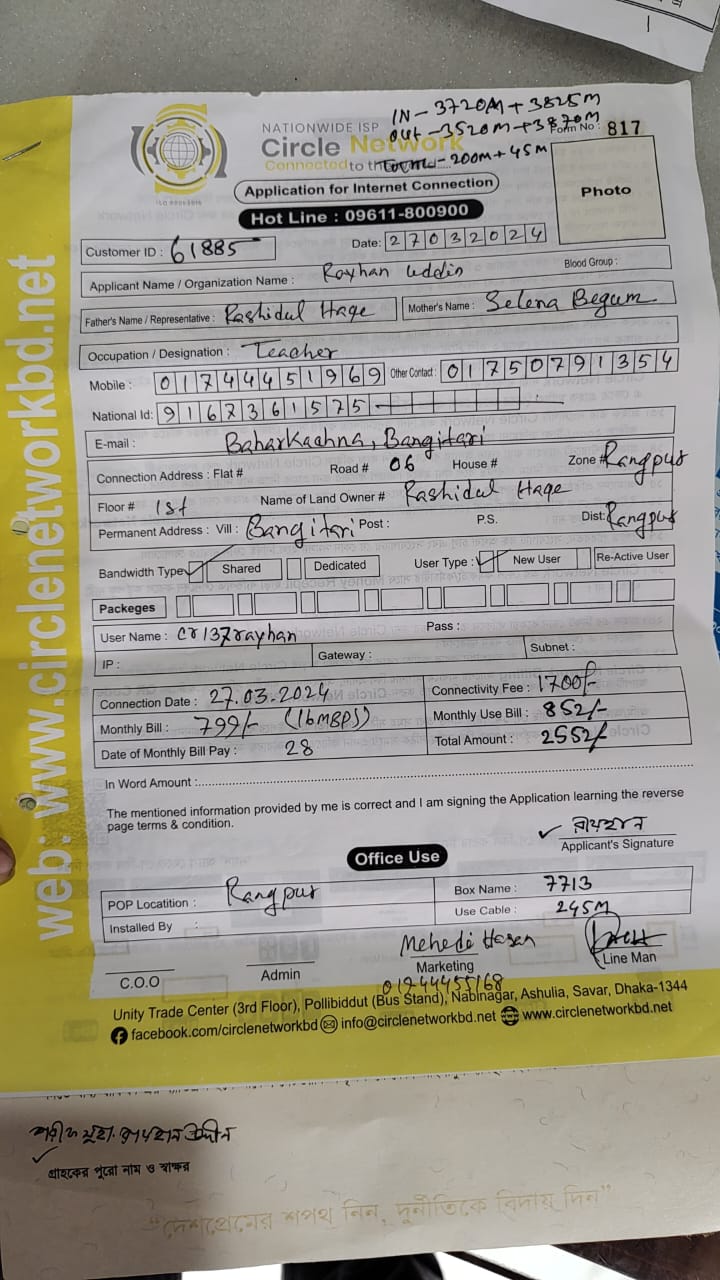 IN - 3720M + 3825M
NATIONWIDE ISP
out - 3520M + 3870M
Form No : 817
Circle Network
Connected to th
- 200M + 45M
ISO 9001:2015
Application for Internet Connection
Photo
Hot Line : 09611-800900
Customer ID : 61885
Date: 27032024
Applicant Name / Organization Name : Rayhan Uddin
Blood Group :
Father's Name / Representative : Rashidul Haqe
Mother's Name : Selena Begum
Occupation / Designation : Teacher
Mobile : 01744451969 Other Contact : 01750791354
National Id: 9167361575
E-mail : Baharkachna, Bangitari
Connection Address : Flat # Road # 06 House # Zone # Rangpur
Floor # 1st Name of Land Owner # Rashidul Haqe
Permanent Address : Vill : Bangitari Post : P.S. Dist: Rangpur
Bandwidth Type ✓ Shared Dedicated User Type : ✓ New User Re-Active User
Packeges
User Name : cr137rayhan Pass :
IP : Gateway : Subnet :
Connection Date : 27.03.2024 Connectivity Fee : 1700/-
Monthly Bill : 799/- (16MBPS) Monthly Use Bill : 852/-
Date of Monthly Bill Pay : 28 Total Amount : 2552/-
In Word Amount :
The mentioned information provided by me is correct and I am signing the Application learning the reverse
page terms & condition.
✓ রায়হান
Applicant's Signature
Office Use
POP Locatition : Rangpur Box Name : 7713
Installed By : Use Cable : 245M
Mehedi Hasan
C.O.O Admin Marketing Line Man
01744455168
Unity Trade Center (3rd Floor), Pollibiddut (Bus Stand), Nabinagar, Ashulia, Savar, Dhaka-1344
facebook.com/circlenetworkbd info@circlenetworkbd.net www.circlenetworkbd.net
web: www.circlenetworkbd.net
শরীফ মুহা. রায়হান উদ্দীন
✓
গ্রাহকের পুরো নাম ও স্বাক্ষর
“দেশপ্রেমের শপথ নিন, দুর্নীতিকে বিদায় দিন”